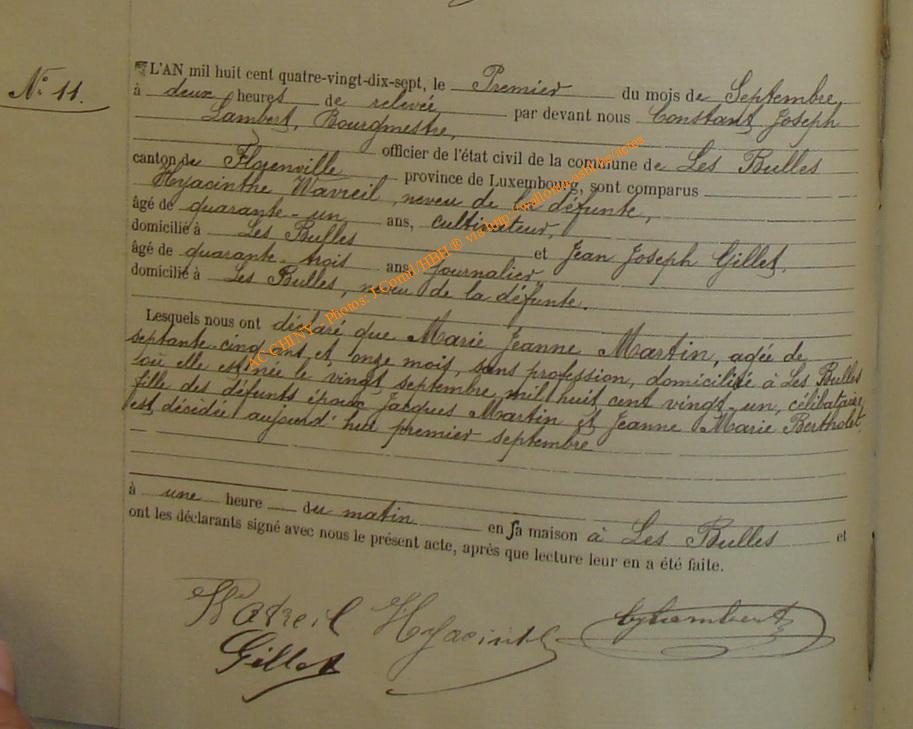 N° 11.
L'AN mil huit cent quatre-vingt-dix-sept, le Premier du mois de Septembre,
à deux heures de relevée par devant nous Constant Joseph
Lambert, Bourgmestre,
officier de l'état civil de la commune de Les Bulles
canton de Florenville province de Luxembourg, sont comparus
Hyacinthe Watreil, neveu de la défunte,
âgé de quarante-un ans, cultivateur,
domicilié à Les Bulles et Jean Joseph Gillet,
âgé de quarante-trois ans, journalier
domicilié à Les Bulles, neveu de la défunte.
Lesquels nous ont déclaré que Marie Jeanne Martin, agée de
septante-cinq ans et onze mois, sans profession, domiciliée à Les Bulles
où elle est née le vingt septembre mil huit cent vingt-un, célibataire,
fille des défunts époux Jacques Martin et Jeanne Marie Bertholet,
est décédée aujourd'hui premier septembre
à une heure du matin en sa maison à Les Bulles et
ont les déclarants signé avec nous le présent acte, après que lecture leur en a été faite.
Watreil Hyacinthe Lambert
Gillet
ACCHINY - Photos: J.Comil /HBH® via http://